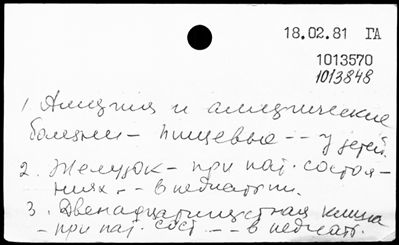 18.02.81 ГА
1013570
1013848
1. Аллергия и аллергические
болезни - пищевые -- у детей.
2. Желудок - при пат. состоя-
ниях -- в педиатрии.
3. Двенадцатиперстная кишка
- при пат. сост. -- в педиатр.